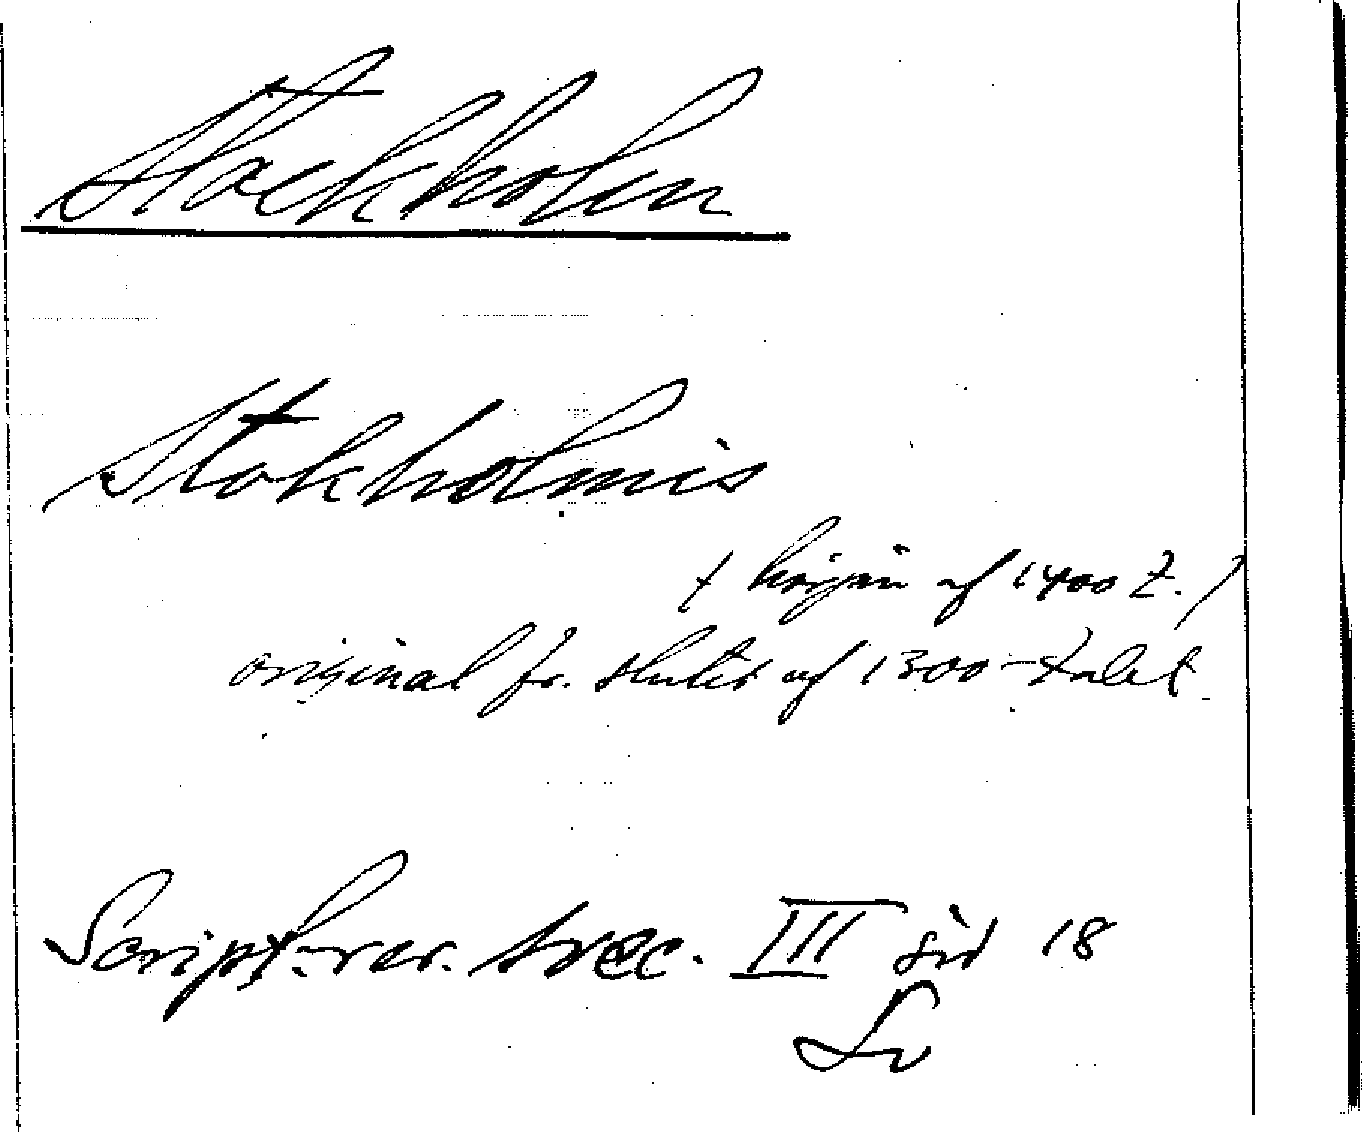 Stockholm
Stokholmis
( början af 1400 t. )
original fr. slutet af 1300-talet
Script. rer. svec. III sid 18